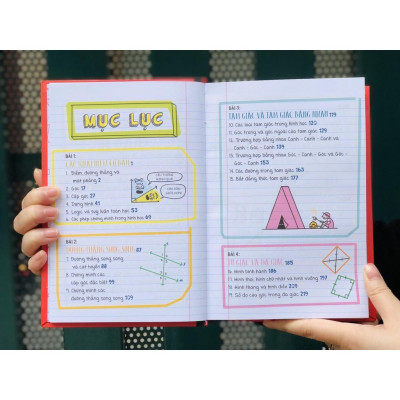 MỤC LỤC
BÀI 1:
CÁC KHÁI NIỆM CƠ BẢN 1
1. Điểm, đường thẳng và
mặt phẳng 2
2. Góc 17
3. Cặp góc 27
4. Dựng hình 41
5. Logic và suy luận toán học 53
6. Các phép chứng minh trong hình học 69
BÀI 2:
ĐƯỜNG THẲNG SONG SONG 87
7. Đường thẳng song song
và cát tuyến 88
8. Chứng minh các
cặp góc đặc biệt 95
9. Chứng minh các
đường thẳng song song 109
BÀI 3:
TAM GIÁC VÀ TAM GIÁC BẰNG NHAU 119
10. Các loại tam giác trong hình học 120
11. Góc trong và góc ngoài của tam giác 129
12. Trường hợp bằng nhau Cạnh - Cạnh - Cạnh và
Cạnh - Góc - Cạnh 139
13. Trường hợp bằng nhau Góc - Cạnh - Góc và Góc -
Góc - Cạnh 153
14. Các đường trong tam giác 163
15. Bất đẳng thức tam giác 177
BÀI 4:
TỨ GIÁC VÀ ĐA GIÁC 185
16. Hình bình hành 186
17. Hình thoi, hình chữ nhật và hình vuông 197
18. Hình thang và hình diều 209
19. Số đo các góc trong đa giác 219